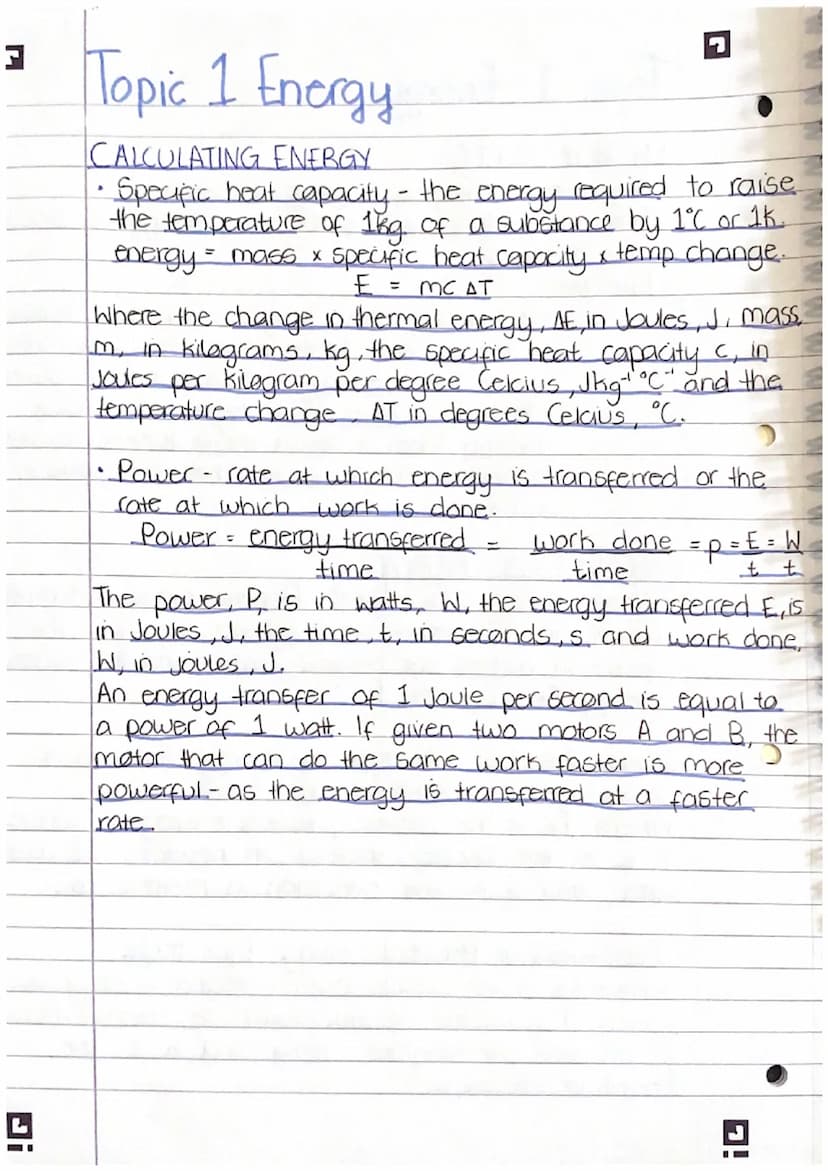 Topic 1 Energy
CALCULATING ENERGY
• Specific heat capacity - the energy required to raise
the temperature of 1kg of a substance by 1°C or 1k.
energy = mass x specific heat capacity x temp change.
E = mc ΔT
Where the change in thermal energy, ΔE, in Joules, J, mass,
m, in kilograms, kg, the specific heat capacity c, in
Joules per kilogram per degree Celcius, Jkg⁻¹ °C⁻¹ and the
temperature change, ΔT in degrees Celcius, °C.
• Power - rate at which energy is transferred or the
rate at which work is done.
Power = energy transferred = work done = p = E = W
time time t t
The power, P, is in watts, W, the energy transferred E, is
in Joules, J, the time, t, in seconds, s and work done,
W, in joules, J.
An energy transfer of 1 Joule per second is equal to
a power of 1 watt. If given two motors A and B, the
motor that can do the same work faster is more
powerful - as the energy is transferred at a faster
rate.